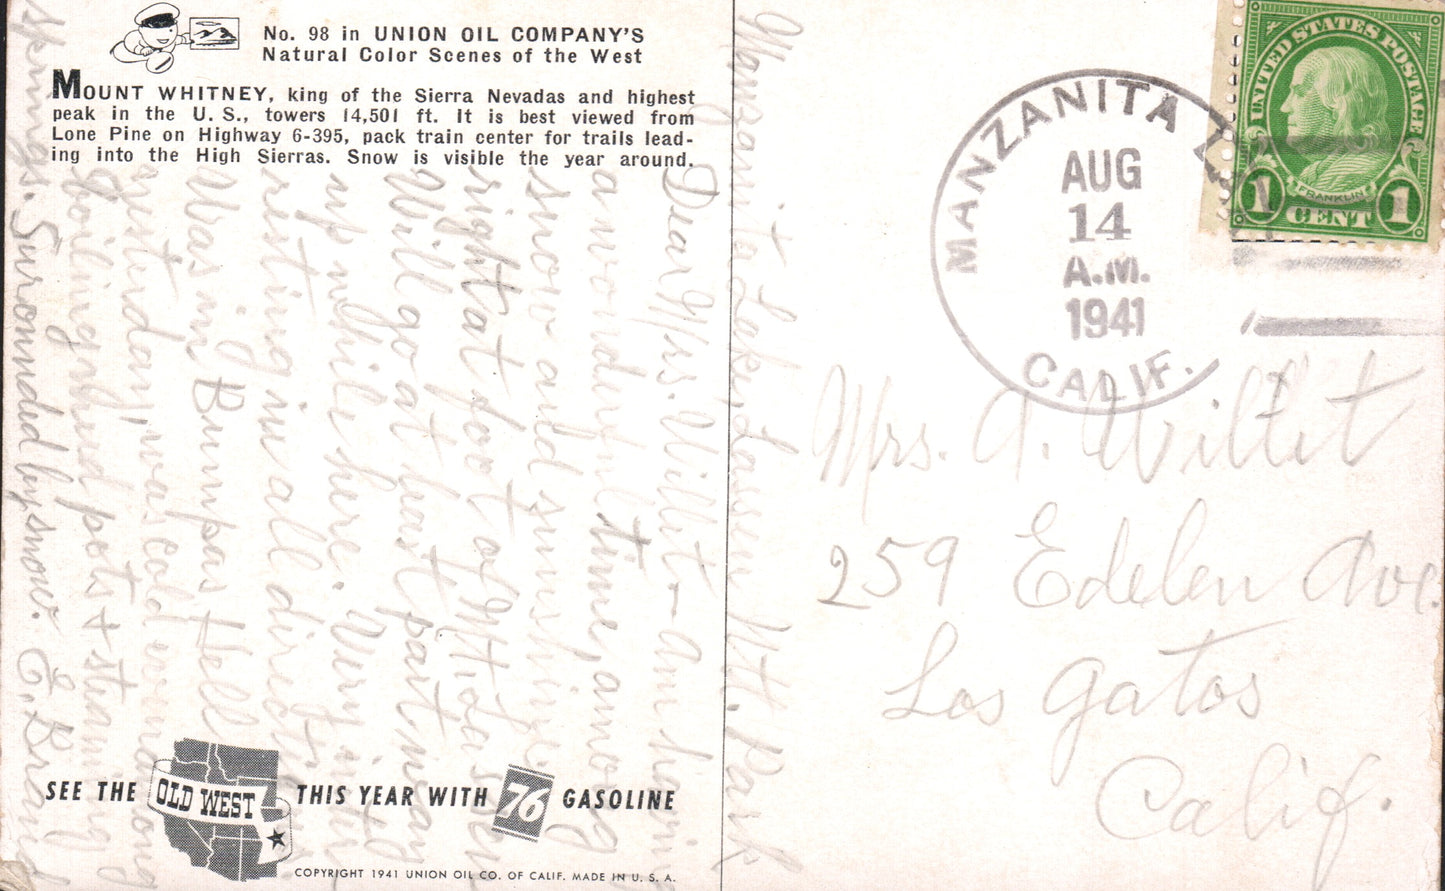 No. 98 in UNION OIL COMPANY'S
Natural Color Scenes of the West
MOUNT WHITNEY, king of the Sierra Nevadas and highest
peak in the U. S., towers 14,501 ft. It is best viewed from
Lone Pine on Highway 6-395, pack train center for trails lead-
ing into the High Sierras. Snow is visible the year around.
Manzanita Lake, Lassen Nt. Park
Dear Mrs. Willit - am having
a wonderful time, among
snow and sunshine
right at foot of Mt
Will go at last part way
up while here. Very
in all
Was in Bumpas Hell
yesterday, was cold among
boiling mud pots & steaming
springs. Suronnded by snow. E. Brand
SEE THE OLD WEST THIS YEAR WITH 76 GASOLINE
COPYRIGHT 1941 UNION OIL CO. OF CALIF. MADE IN U. S. A.
UNITED STATES POSTAGE
FRANKLIN
1 CENT 1
MANZANITA
AUG
14
A.M.
1941
CALIF.
Mrs. A. Willit
259 Edelen Ave.
Los Gatos
Calif.